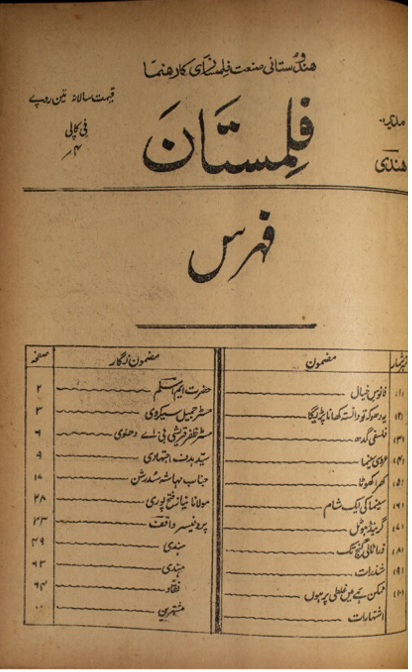 ہندوستانی صنعت فلمسازی کا رہنما
قیمت سالانہ تین روپے
فی کاپی
۴؍
مدیر
ھندی
فلمستان
فہرس
نمبر شمار مضمون مضمون نگار صفحہ
(۱) فانوس خیال حضرت ایم اسلم ۲
(۲) یہ دھوکہ تو دانستہ کھانا پڑیگا مسٹر جمیل سیکروی ۳
(۳) فلسفی گدھ مسٹر ظفر قریشی بی۔ اے دھلوی ۶
(۴) سینما سید ہدف اجتہادی ۹
(۵) کھرا کھوٹا جناب مہاشہ سدرشن ۱۷
(۶) سینما کی ایک شام مولانا نیاز فتحپوری ۲۸
(۷) گرینڈ ہوٹل پروفیسر واقف ۳۳
(۸) ٹالی گنج تک ہندی ۴۹
(۹) شذرات ہندی ۶۳
(۱۰) ممکن ہے میں غلطی پر ہوں نقاد ۶۴
اشتہارات مشتہرین